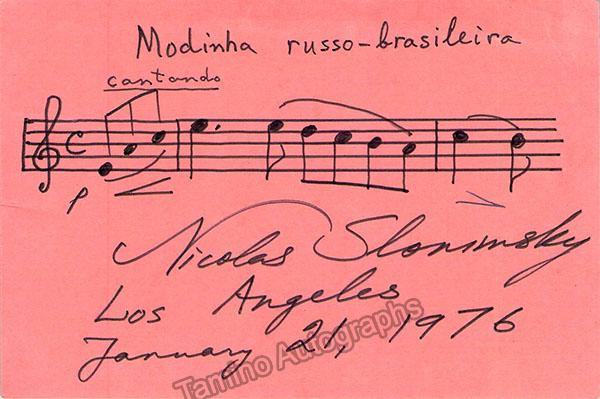 Modinha russo-brasileira
cantando
C
p
Nicolas Slonimsky
Los Angeles
January 21, 1976
Tamino Autographs